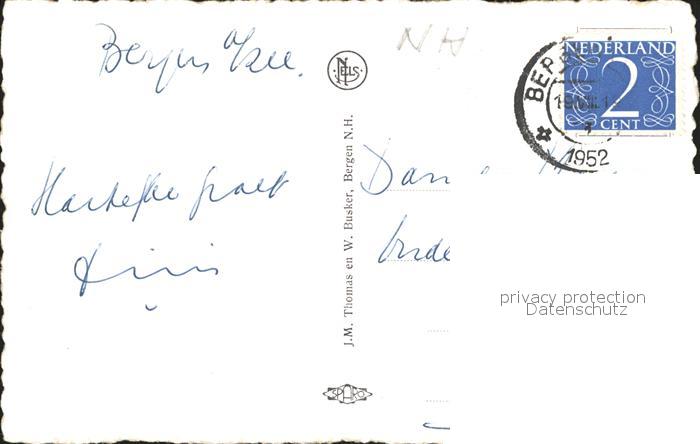 Bergen a/zee.
NELS
NH
J.M. Thomas en W. Busker, Bergen N.H.
SPARO
Hartelijke groet
NEDERLAND
2
CENT
BERGEN
1952
privacy protection
Datenschutz